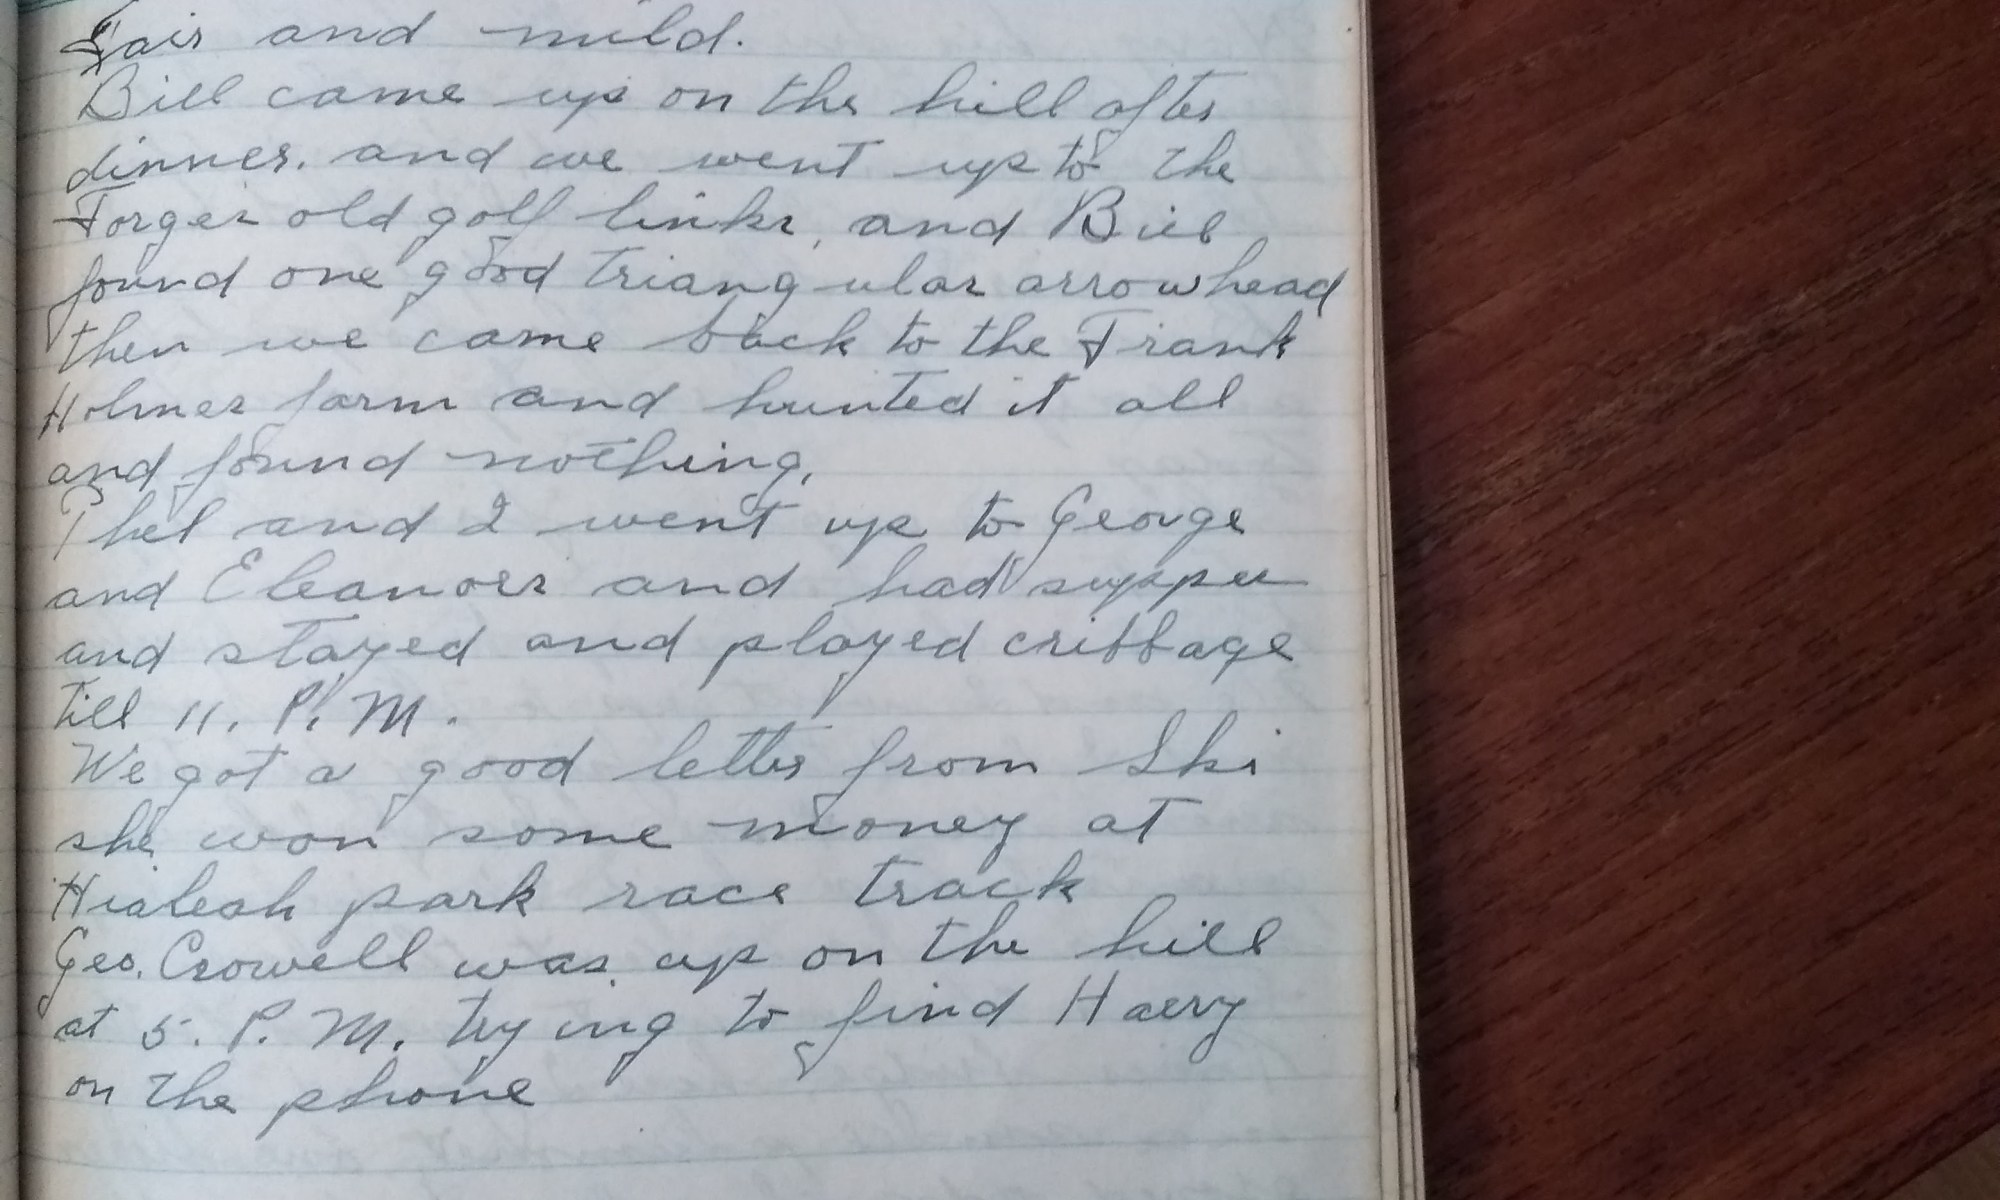 Fair and mild.
Bill came up on the hill after
dinner. and we went up to the
Forges old golf links, and Bill
found one good triangular arrowhead
then we came back to the Frank
Holmes farm and hunted it all
and found nothing.
Phel and I went up to George
and Eleanors and had supper
and stayed and played cribbage
till 11. P. M.
We got a good letter from Ski
she won some money at
Hialeah park race track
Geo. Crowell was up on the hill
at 5. P. M. trying to find Harry
on the phone